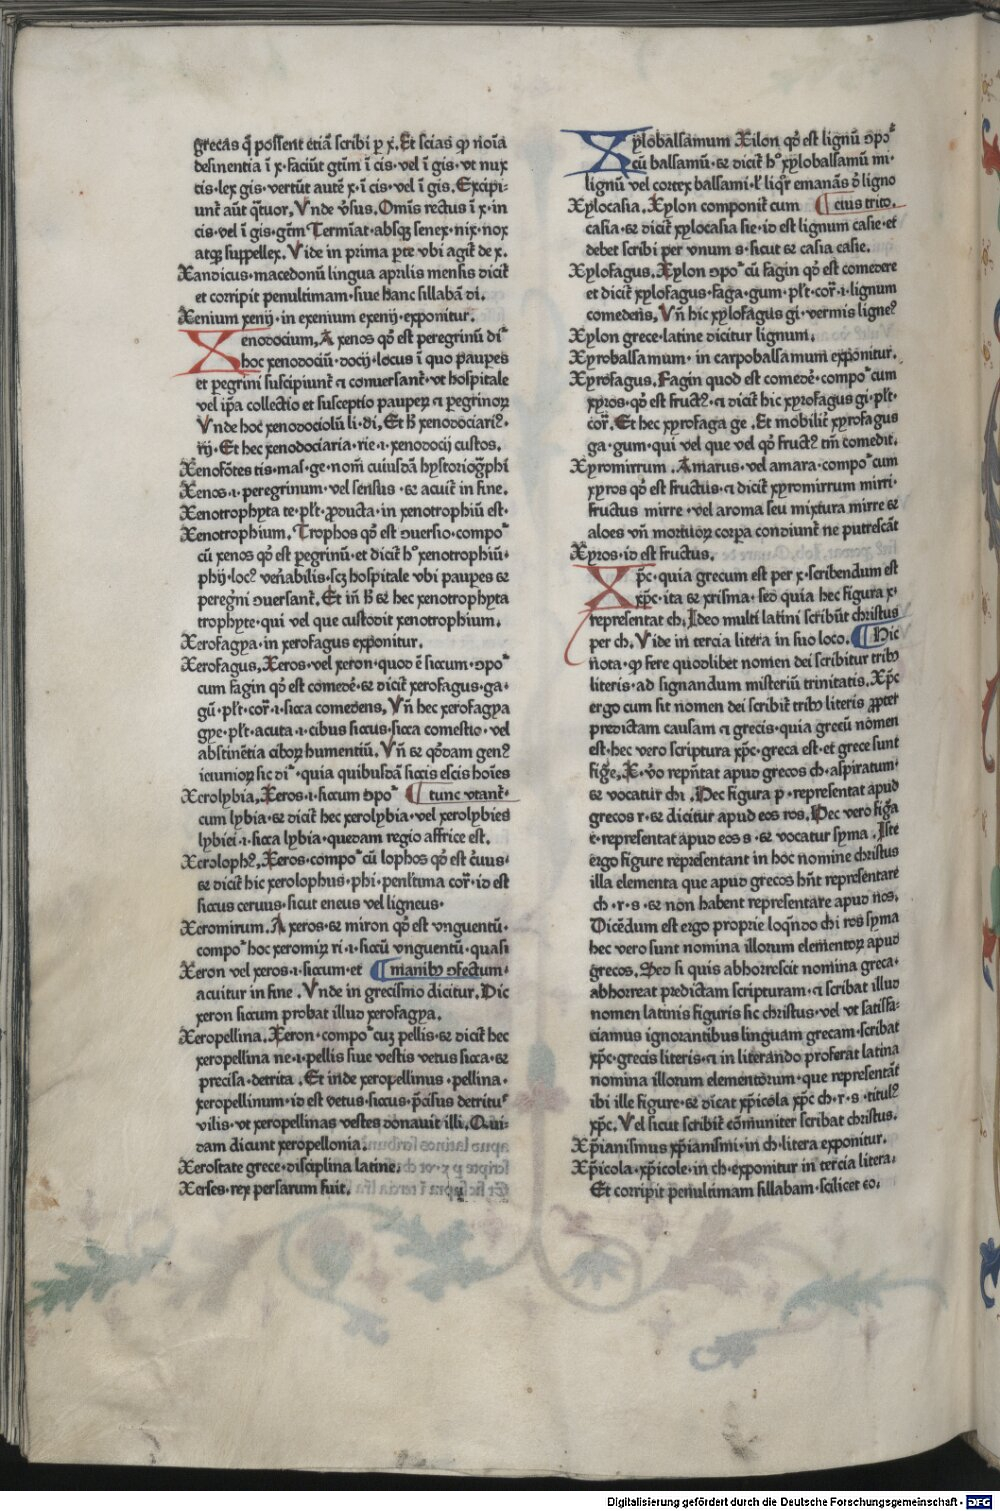 grecas q̄ possent etiā scribi ꝑ x. Et scias ꝙ noīa
desinentia ī x. faciūt gtīm ī cis. vel ī gis. vt nux
cis. lex gis. vertūt autē x. ī cis. vel ī gis. Excipi-
unt̃ aūt q̃tuor. Vnde ṽsus. Om̄is rectus ī x. in
cis. vel ī gis. gtīm Termīat. absqꝫ senex. nix. nox
atqꝫ suppellex. Vide in prima ꝑte vbi agit̃ de x.
Xandicus. macedonū lingua aprilis mensis dicit̃
et corripit penultimam. siue hanc sillabā di.
Xenium xenij. in exenium exenij. exponitur.
Xenodocium, A xenos qđ est peregrinū di᷑
hoc xenodociū. docij. locus ī quo pauꝑes
et ꝑegrini suscipiunt̃ ⁊ conuersant̃. vt hospitale
vel ip̄a collectio et susceptio pauꝑeꝝ ⁊ ꝑegrinoꝝ
Vnde hoc xenodociolū li. di, Et ħ xenodociari᷒.
rij. Et hec xenodociaria. rie. i. xenodocij custos.
Xenofōtes tis. mas. ge. nom̄ cuiusdā hystoriog̃phi
Xenos. i. peregrinum. vel sensus. ⁊ acuit̃ in fine.
Xenotrophyta te. pl̃t. ꝓducta. in xenotrophiū est.
Xenotrophium. Trophos qđ est ꝯuersio. compo᷑
cū xenos qđ est ꝑegrinū. et dicit̃ ħ xenotrophiū.
phij. loc᷒ veñabilis. scꝫ hospitale vbi pauꝑes ⁊
peregr̃ni ꝯuersant̃. Et iñ ħ ⁊ hec xenotrophyta
trophyte. qui vel que custodit xenotrophium.
Xerofagya. in xerofagus exponitur.
Xerofagus, Xeros. vel xeron. quod ē siccum. ꝯpo᷑
cum fagin qđ est comedē. ⁊ dicit̃ xerofagus. ga-
gū. pl̃t. cor̃. i. sicca comedens, Vñ hec xerofagya
gye. pl̃t. acuta. i. cibus siccus. sicca comestio. vel
abstinētia ciboꝝ humentiū. Vñ ⁊ qđdam gen᷒
ieiunioꝝ sic di᷑. quia quibusdā siccis escis hoīes
Xerolybia, Xeros. i. siccum ꝯpo᷑ ¶ tunc vtant̃.
cum lybia. ⁊ dicit̃ hec xerolybia. vel xerolybies
lybiei. i. sicca lybia. quedam regio affrice est.
Xeroloph᷒, Xeros. compo᷑ cū lophos qđ est c̃uus.
⁊ dicit̃ hic xerolophus. phi. penl̃tima cor̃. id est
siccus ceruus. sicut eneus vel ligneus.
Xeromirum. A xeros. ⁊ miron qđ est vnguentū.
compo᷑ hoc xeromiꝝ ri. i. siccū vnguentū. quasi
Xeron vel xeros. i. siccum. et ¶ manibꝫ ꝯfectum.
acuitur in fine. Vnde in grecismo dicitur. Hic
xeron siccum probat illud xerofagya.
Xeropellina. Xeron. compo᷑ cuꝫ pellis. ⁊ dicit̃ hec
xeropellina ne. i. pellis siue vestis vetus sicca. ⁊
precisa. detrita. Et inde xeropellinus. pellina.
xeropellinum. id est vetus. siccus. p̄cisus detritu᷒
vilis. vt xeropellinas vestes donauit illi. Qui-
dam dicunt xeropellonia.
Xerostate grece. disciplina latine.
Xerses. rex persarum fuit.
Xylobalsamum Xilon qđ est lignū ꝯpo᷑
cū balsamū. ⁊ dicit̃ ħ xylobalsamū mi.
lignū vel cortex balsami. ł liq̃r emanās đ ligno
Xylocasia. Xylon componit̃ cum ¶ eius trito.
casia. ⁊ dicit̃ xylocasia sie. id est lignum casie. et
debet scribi per vnum s. sicut ⁊ casia casie.
Xylofagus. Xylon ꝯpo᷑ cū fagin qđ est comedere
et dicit̃ xylofagus. faga. gum. pl̃t. cor̃. i. lignum
comedens, Vñ hic xylofagus gi. vermis ligne᷒
Xylon grece. latine dicitur lignum.
Xyrobalsamum. in carpobalsamum exponitur.
Xyrofagus. Fagin quod est comedē. compo᷑ cum
xyros. qđ est fruct᷒. ⁊ dicit̃ hic xyrofagus gi. pl̃t.
cor̃. Et hec xyrofaga ge. Et mobilit̃ xyrofagus
ga. gum. qui vel que vel qđ fruct᷒ tm̄ comedit.
Xyromirrum. Amarus. vel amara. compo᷑ cum
xyros qđ est fructus. ⁊ dicit̃ xyromirrum mirri.
fructus mirre. vel aroma seu mixtura mirre ⁊
aloes vñ mortuoꝝ corpa condiunt̃ ne putrescāt
Xyros. id est fructus.
Xp̄c. quia grecum est per x. scribendum est
xp̄c. ita ⁊ xrisma. sed quia hec figura x.
representat ch. Ideo multi latini scribūt christus
per ch. Vide in tercia litera in suo loco. ¶ Hic
nota. ꝙ fere quodlibet nomen dei scribitur tribꝫ
literis. ad signandum misteriū trinitatis. Xp̄c
ergo cum sit nomen dei scribit̃ tribꝫ literis ꝓpter
predictam causam ⁊ grecis. quia grecū nomen
est. hec vero scriptura xp̄c. greca est. et grece sunt
fig̃e, X. v̄o rep̄ñtat apud grecos ch. aspiratum.
⁊ vocatur chi. Hec figura p. representat apud
grecos r. ⁊ dicitur apud eos ros. Hec vero fig̃a
c. representat apud eos s. ⁊ vocatur syma. Iste
ergo figure representant in hoc nomine christus
illa elementa que apud grecos hñt representare
ch. r. s. ⁊ non habent representare apud nos.
Dicēdum est ergo proprie loq̃ndo chi ros syma
hec vero sunt nomina illorum elementoꝝ apud
grecos. Sed si quis abhorrescit nomina greca.
abhorreat predictam scripturam. ⁊ scribat illud
nomen latinis figuris sic christus. vel vt satisfa-
ciamus ignorantibus linguam grecam. scribat
xp̄c. grecis literis. ⁊ in literando proferat latina
nomina illorum elementorum. que representāt
ibi ille figure. ⁊ dicat xp̄icola xp̄c ch. r. s. titul᷒
xp̄c. Vel sicut scribit̃ cōmuniter scribat christus.
Xp̄ianismus xp̄ianismi. in ch. litera exponitur.
Xp̄icola. xp̄icole. in ch. exponitur in tercia litera.
Et corripit penultimam sillabam. scilicet co.
Digitalisierung gefördert durch die Deutsche Forschungsgemeinschaft - DFG